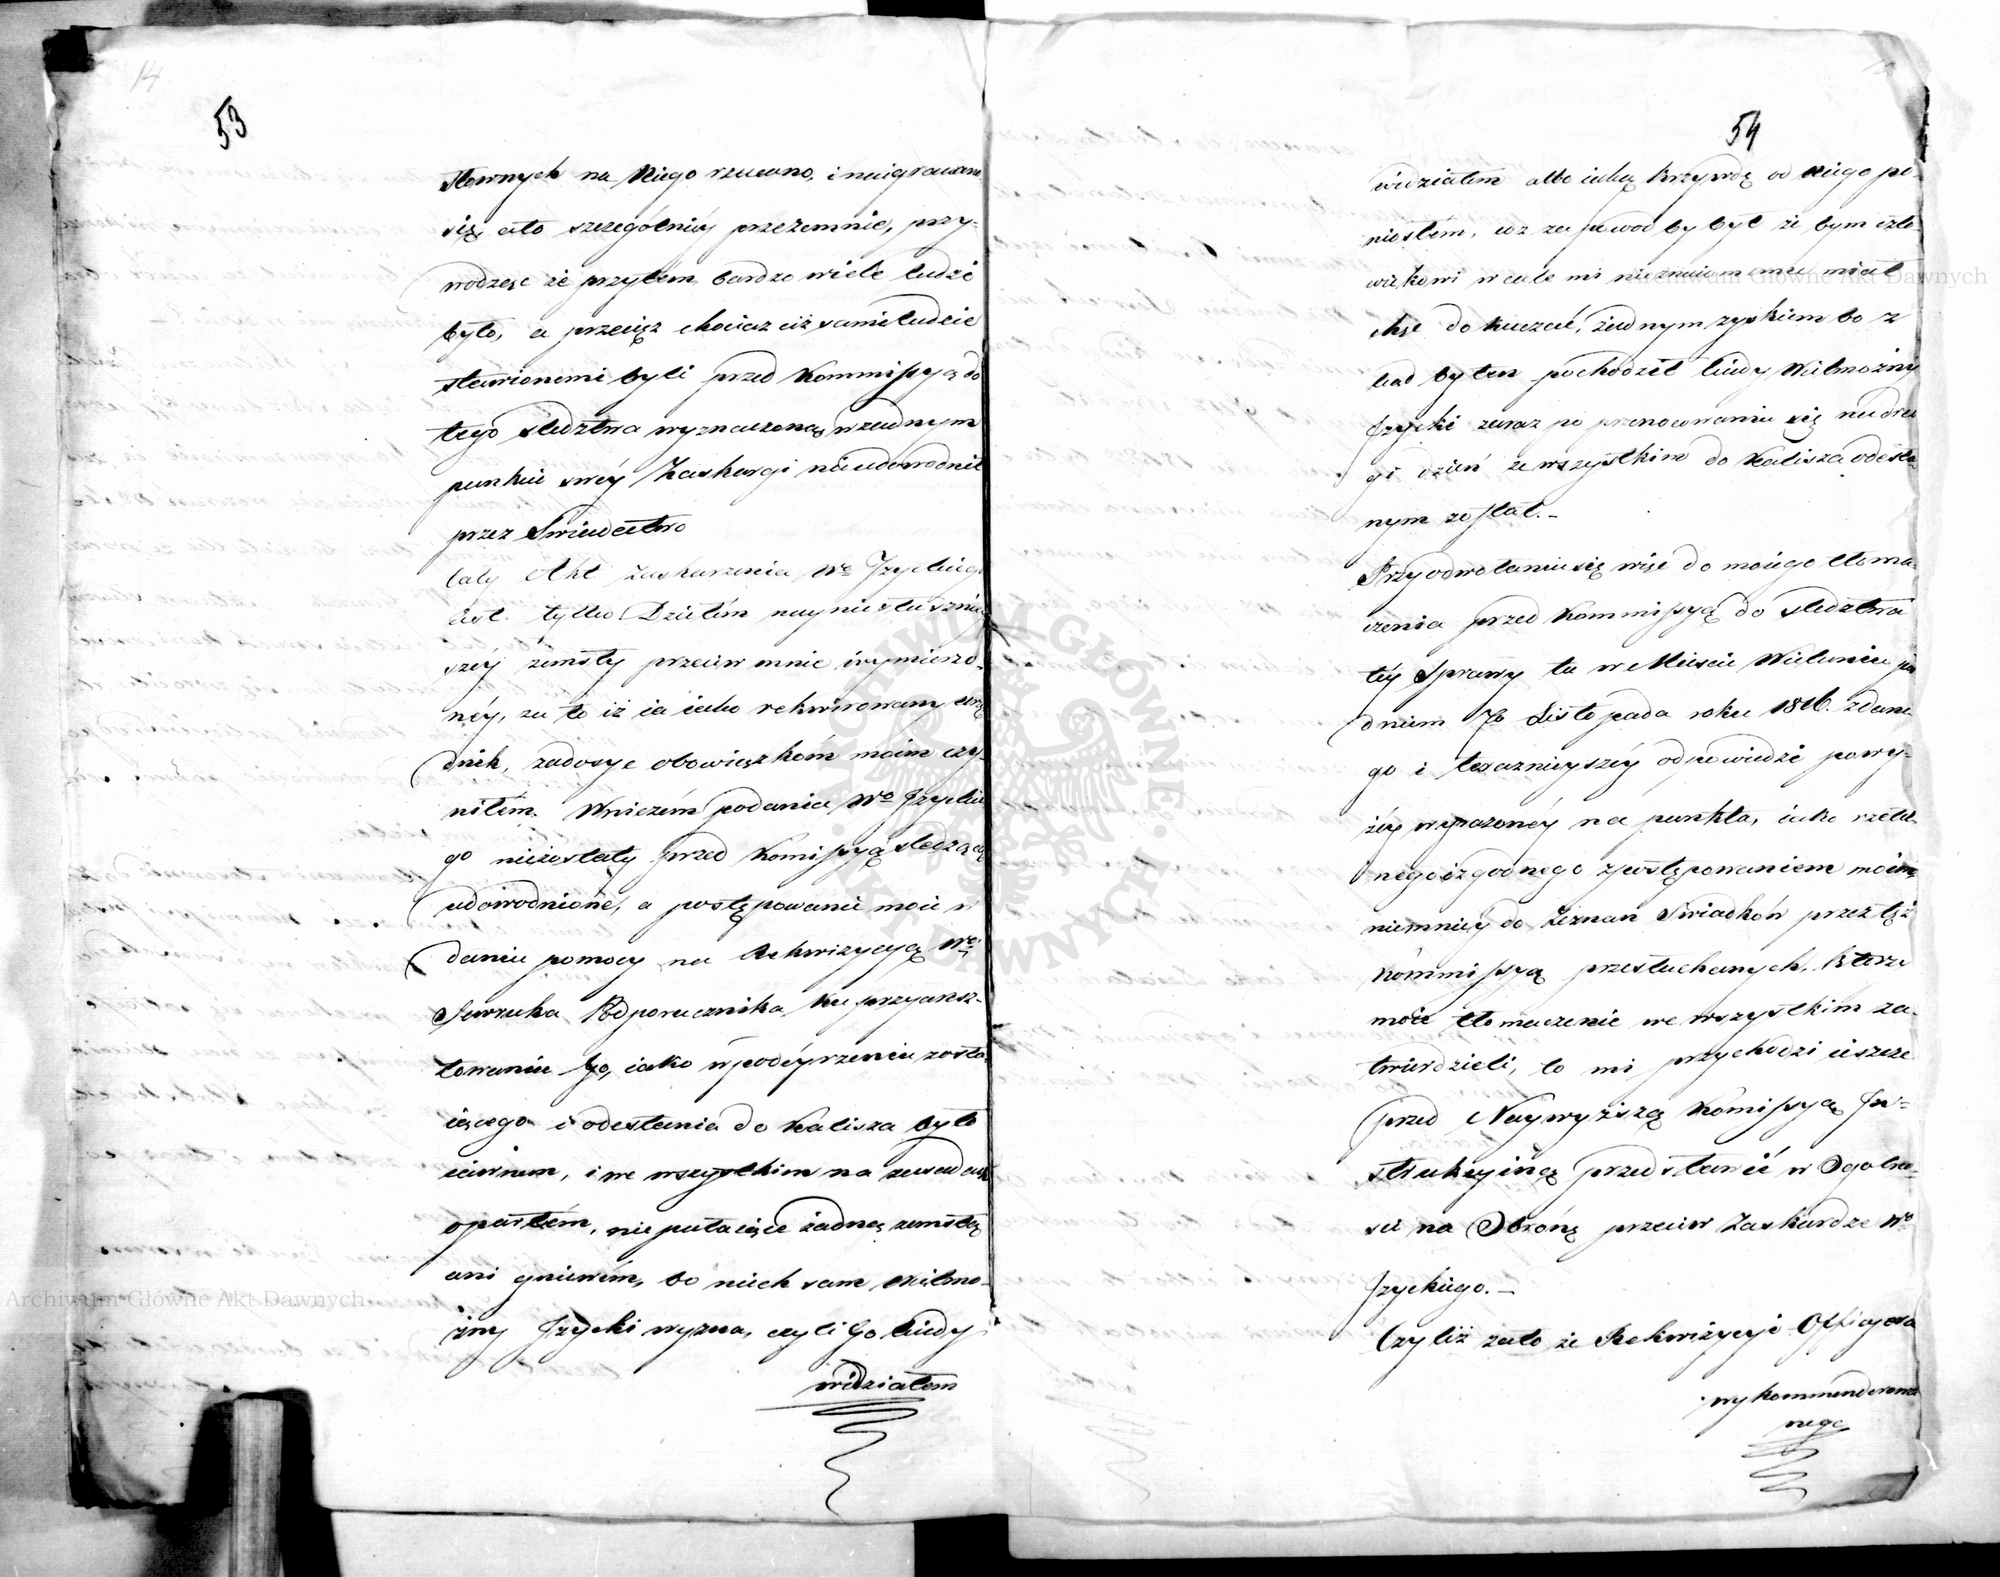 14
53
słownych na Niego rzucano, i naigrawano
się, a to szczególniéy przezemnie, przy-
wodząc że przytem bardzo wiele ludzi
było, a przecież chociaż ciż sami ludzie
stawionemi byli przed Kommissyą do
tego śledztwa wyznaczoną, w żadnym
punkcie swéy Zaskargi nieudowodnił
przez Swiadectwo
Cały Akt Zaskarżenia Wo Jżyckiego
iest tylko Dziełem nayniesłuszniey
széy zemsty przeciw mnie wymierzo-
néy, za to iż ia iako rekwirowany urzę
dnik, zadosyc obowiązkóm moim czy-
niłem. Wniczém podania Wo Jżyckie
go niezostały przed Komissyą sledzącą
udowodnione, a postępowanie moie w
daniu pomocy na Rekwizycyą Wo
Podporucznika, ku przyaresz-
towaniu Go, iako w podéyrzeniu zosta-
iącego i odesłania do Kalisza było
iawnem, i we wszystkim na zasadach
opartém, nie pałaiące żadną zemstą
ani gniewém, bo niech sam Wielmo-
żny Jżycki wyzna, czyli Go kiedy
widziałem
54
widziałem albo iaką krzywdę od niego po-
niosłém, coż za powod by był że bym czło-
wiekowi wcale mi nieznaiomemu miał
chęć dokuczać, żadnym zyskiem bo z
kąd by ten pochodził kiedy Wielmożny
Jżycki zaraz po przenocowaniu się na dru
gi dzień ze wszystkim do Kalisza odesła-
nym został. –
Przy odwołaniu się więc do moiego tłoma-
czenia przed Kommissyą do sledztwa
téy Sprawy tu w Mieście Wieluniu pod
dniem 7o Listopada roku 1816. zdane
go i terazniéyszéy odpowiedzi powy-
żéy wyrażonéy na punkta, iako rzetel-
nego i zgodnego z postępowaniem moim,
niemniéy do Zeznań Swiadków przez tęż
Kommissyą przesłuchanych, którzy
moie tłomaczenie we wszystkim za-
twierdzieli, to mi przychodzi ieszcze
przed Naywyższą Komissyą In-
strukcyiną przedstawić w Ogolno-
ści na Obronę przeciw Zaskardze Wo
Jżyckiego. –
Czyliż zato że Rekwizycyi Officyera
wykommenderowa
nego
Archiwum Główne Akt Dawnych
Archiwum Główne Akt Dawnych
ARCHIWUM GŁÓWNE AKT DAWNYCH